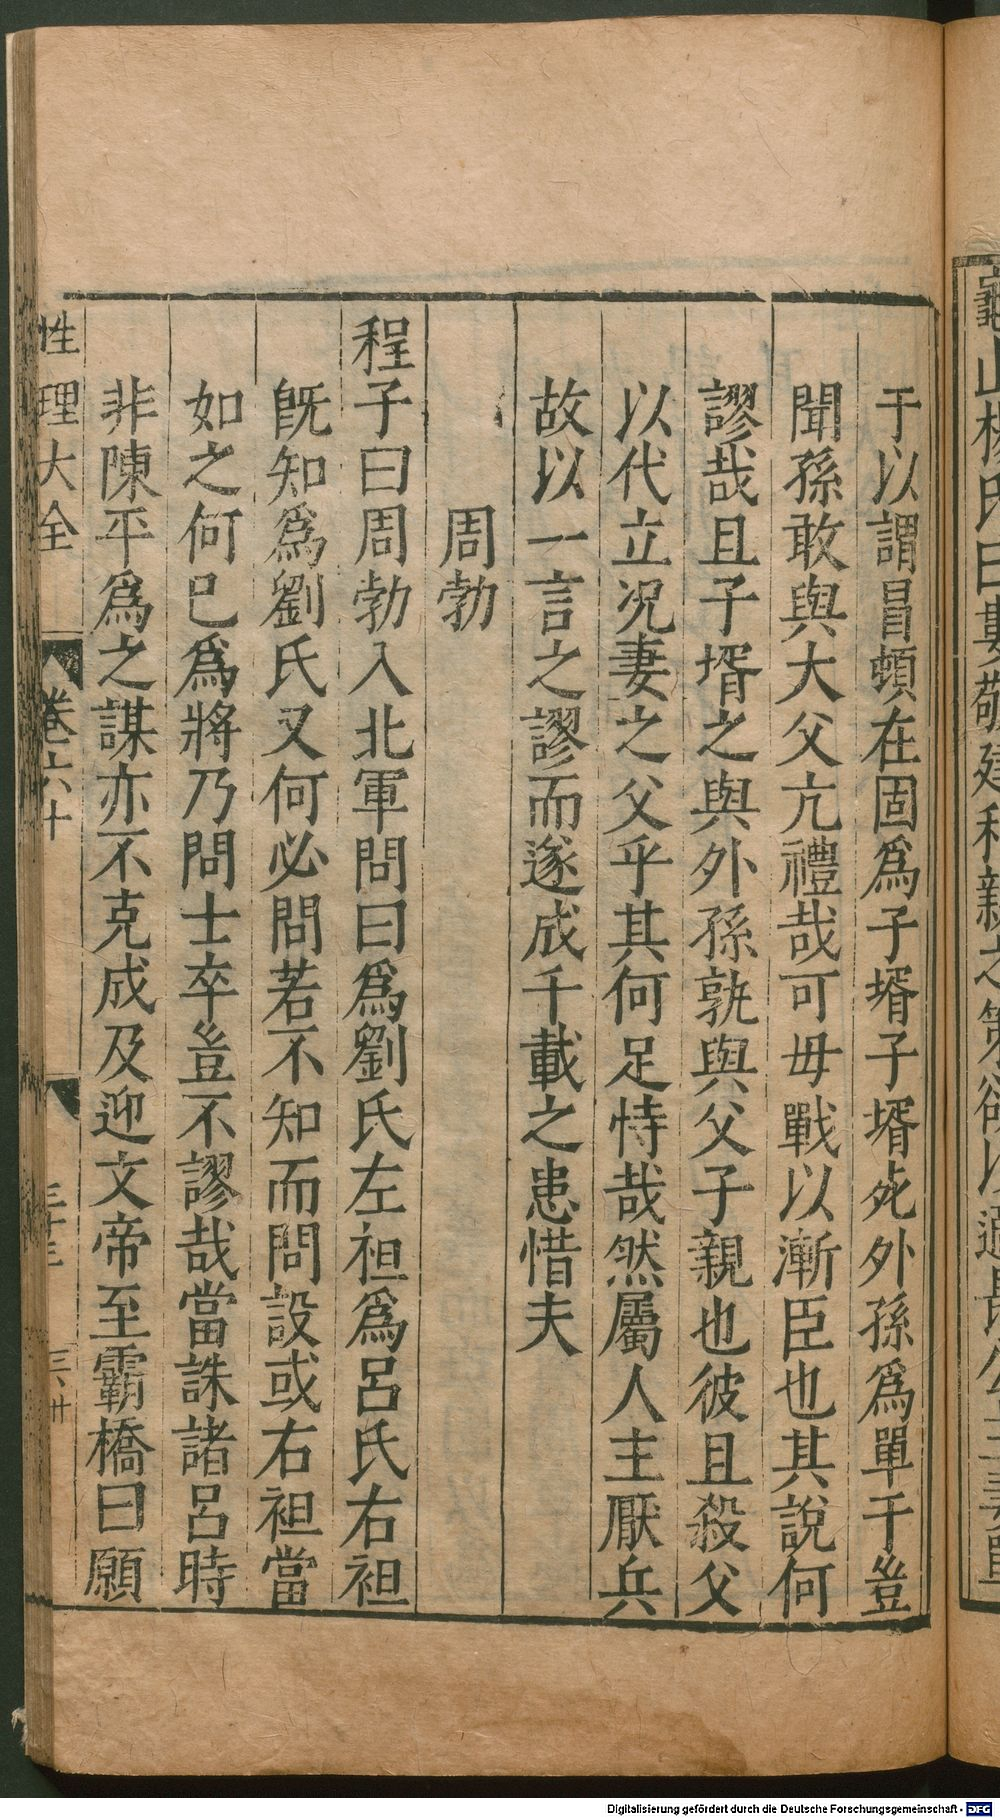 于以謂冒頓在固爲子壻子壻死外孫爲單于豈
聞孫敢與大父亢禮哉可毋戰以漸臣也其說何
謬哉且子壻之與外孫孰與父子親也彼且殺父
以代立况妻之父乎其何足恃哉然屬人主厭兵
故以一言之謬而遂成千載之患惜夫
周勃
程子曰周勃入北軍問曰爲劉氏左袒爲呂氏右袒
旣知爲劉氏又何必問若不知而問設或右袒當
如之何巳爲將乃問士卒豈不謬哉當誅諸呂時
非陳平爲之謀亦不克成及迎文帝至霸橋曰願
性理大全
卷六十
Digitalisierung gefördert durch die Deutsche Forschungsgemeinschaft - DFG